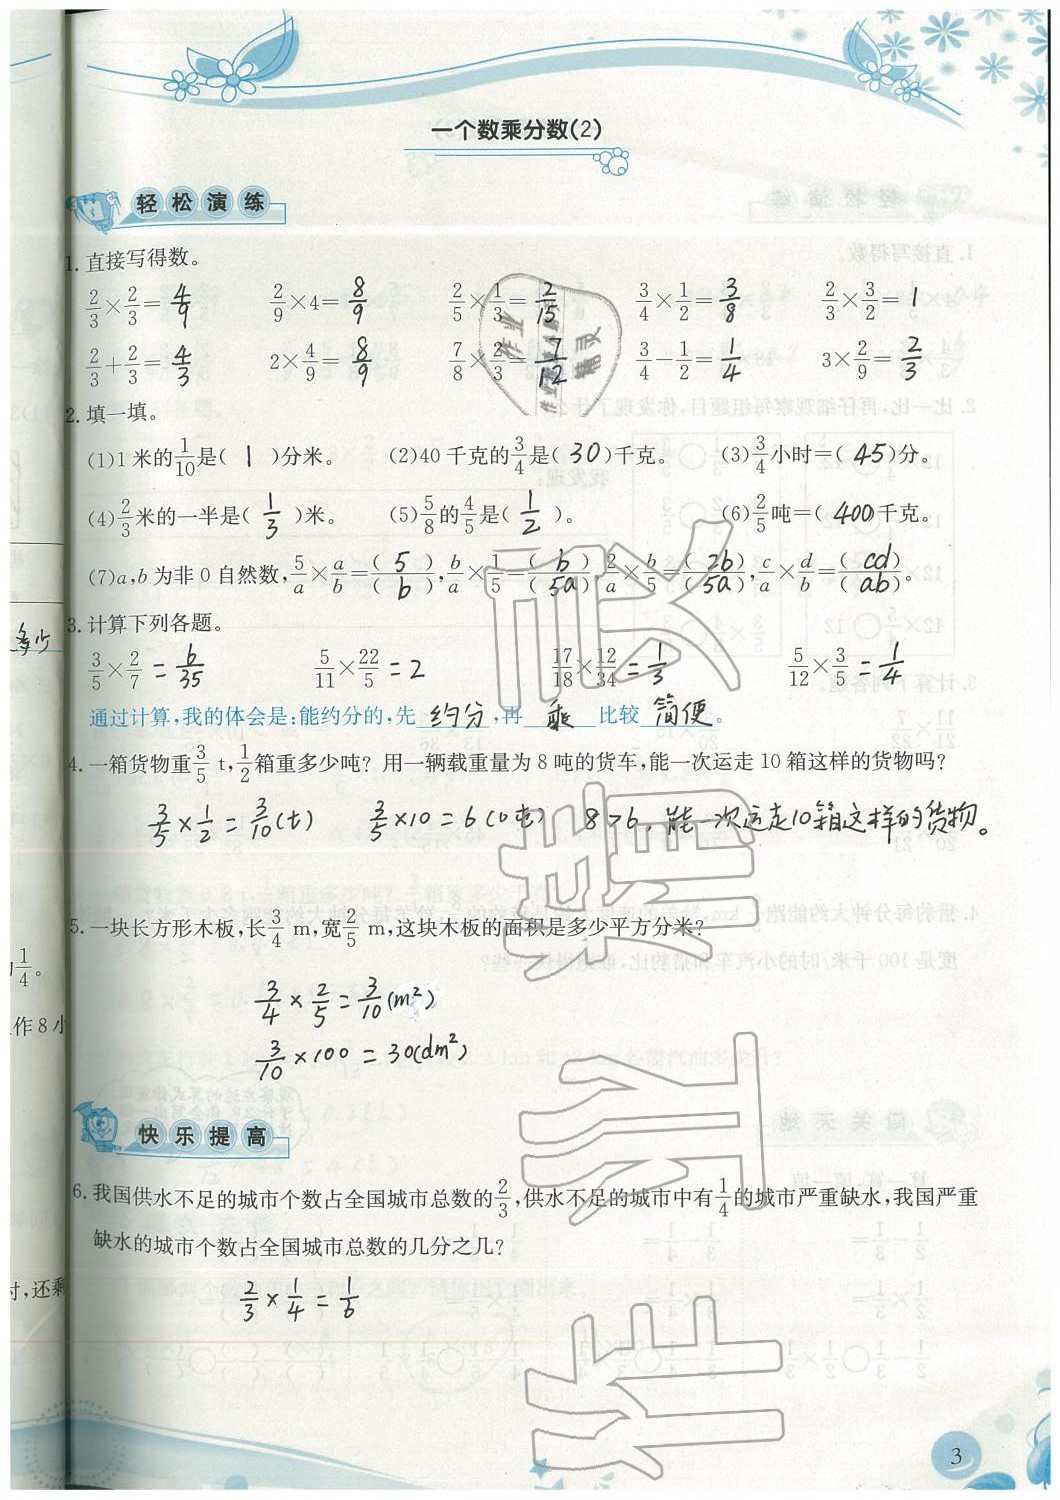 一个数乘分数(2)
轻松演练
1.直接写得数。
2/3×2/3=4/9 2/9×4=8/9 2/5×1/3=2/15 3/4×1/2=3/8 2/3×3/2=1
2/3+2/3=4/3 2×4/9=8/9 7/8×2/3=7/12 3/4-1/2=1/4 3×2/9=2/3
2.填一填。
(1)1米的1/10是( 1 )分米。 (2)40千克的3/4是( 30 )千克。 (3)3/4小时=( 45 )分。
(4)2/3米的一半是( 1/3 )米。 (5)5/8的4/5是( 1/2 )。 (6)2/5吨=( 400 千克。
(7)a,b为非0自然数,5/a×a/b=(5)/(b),b/a×1/5=(b)/(5a),2/a×b/5=(2b)/(5a),c/a×d/b=(cd)/(ab)。
3.计算下列各题。
3/5×2/7=6/35 5/11×22/5=2 17/18×12/34=1/3 5/12×3/5=1/4
通过计算,我的体会是:能约分的,先 约分 ,再 乘 比较 简便 。
4.一箱货物重3/5 t,1/2箱重多少吨? 用一辆载重量为8吨的货车,能一次运走10箱这样的货物吗?
3/5×1/2=3/10(t) 3/5×10=6(吨) 8>6,能一次运走10箱这样的货物。
5.一块长方形木板,长3/4 m,宽2/5 m,这块木板的面积是多少平方分米?
3/4×2/5=3/10(m²)
3/10×100=30(dm²)
快乐提高
6.我国供水不足的城市个数占全国城市总数的2/3,供水不足的城市中有1/4的城市严重缺水,我国严重
缺水的城市个数占全国城市总数的几分之几?
2/3×1/4=1/6
3
多少
1/4。
作8小
时,还剩
作业
精灵